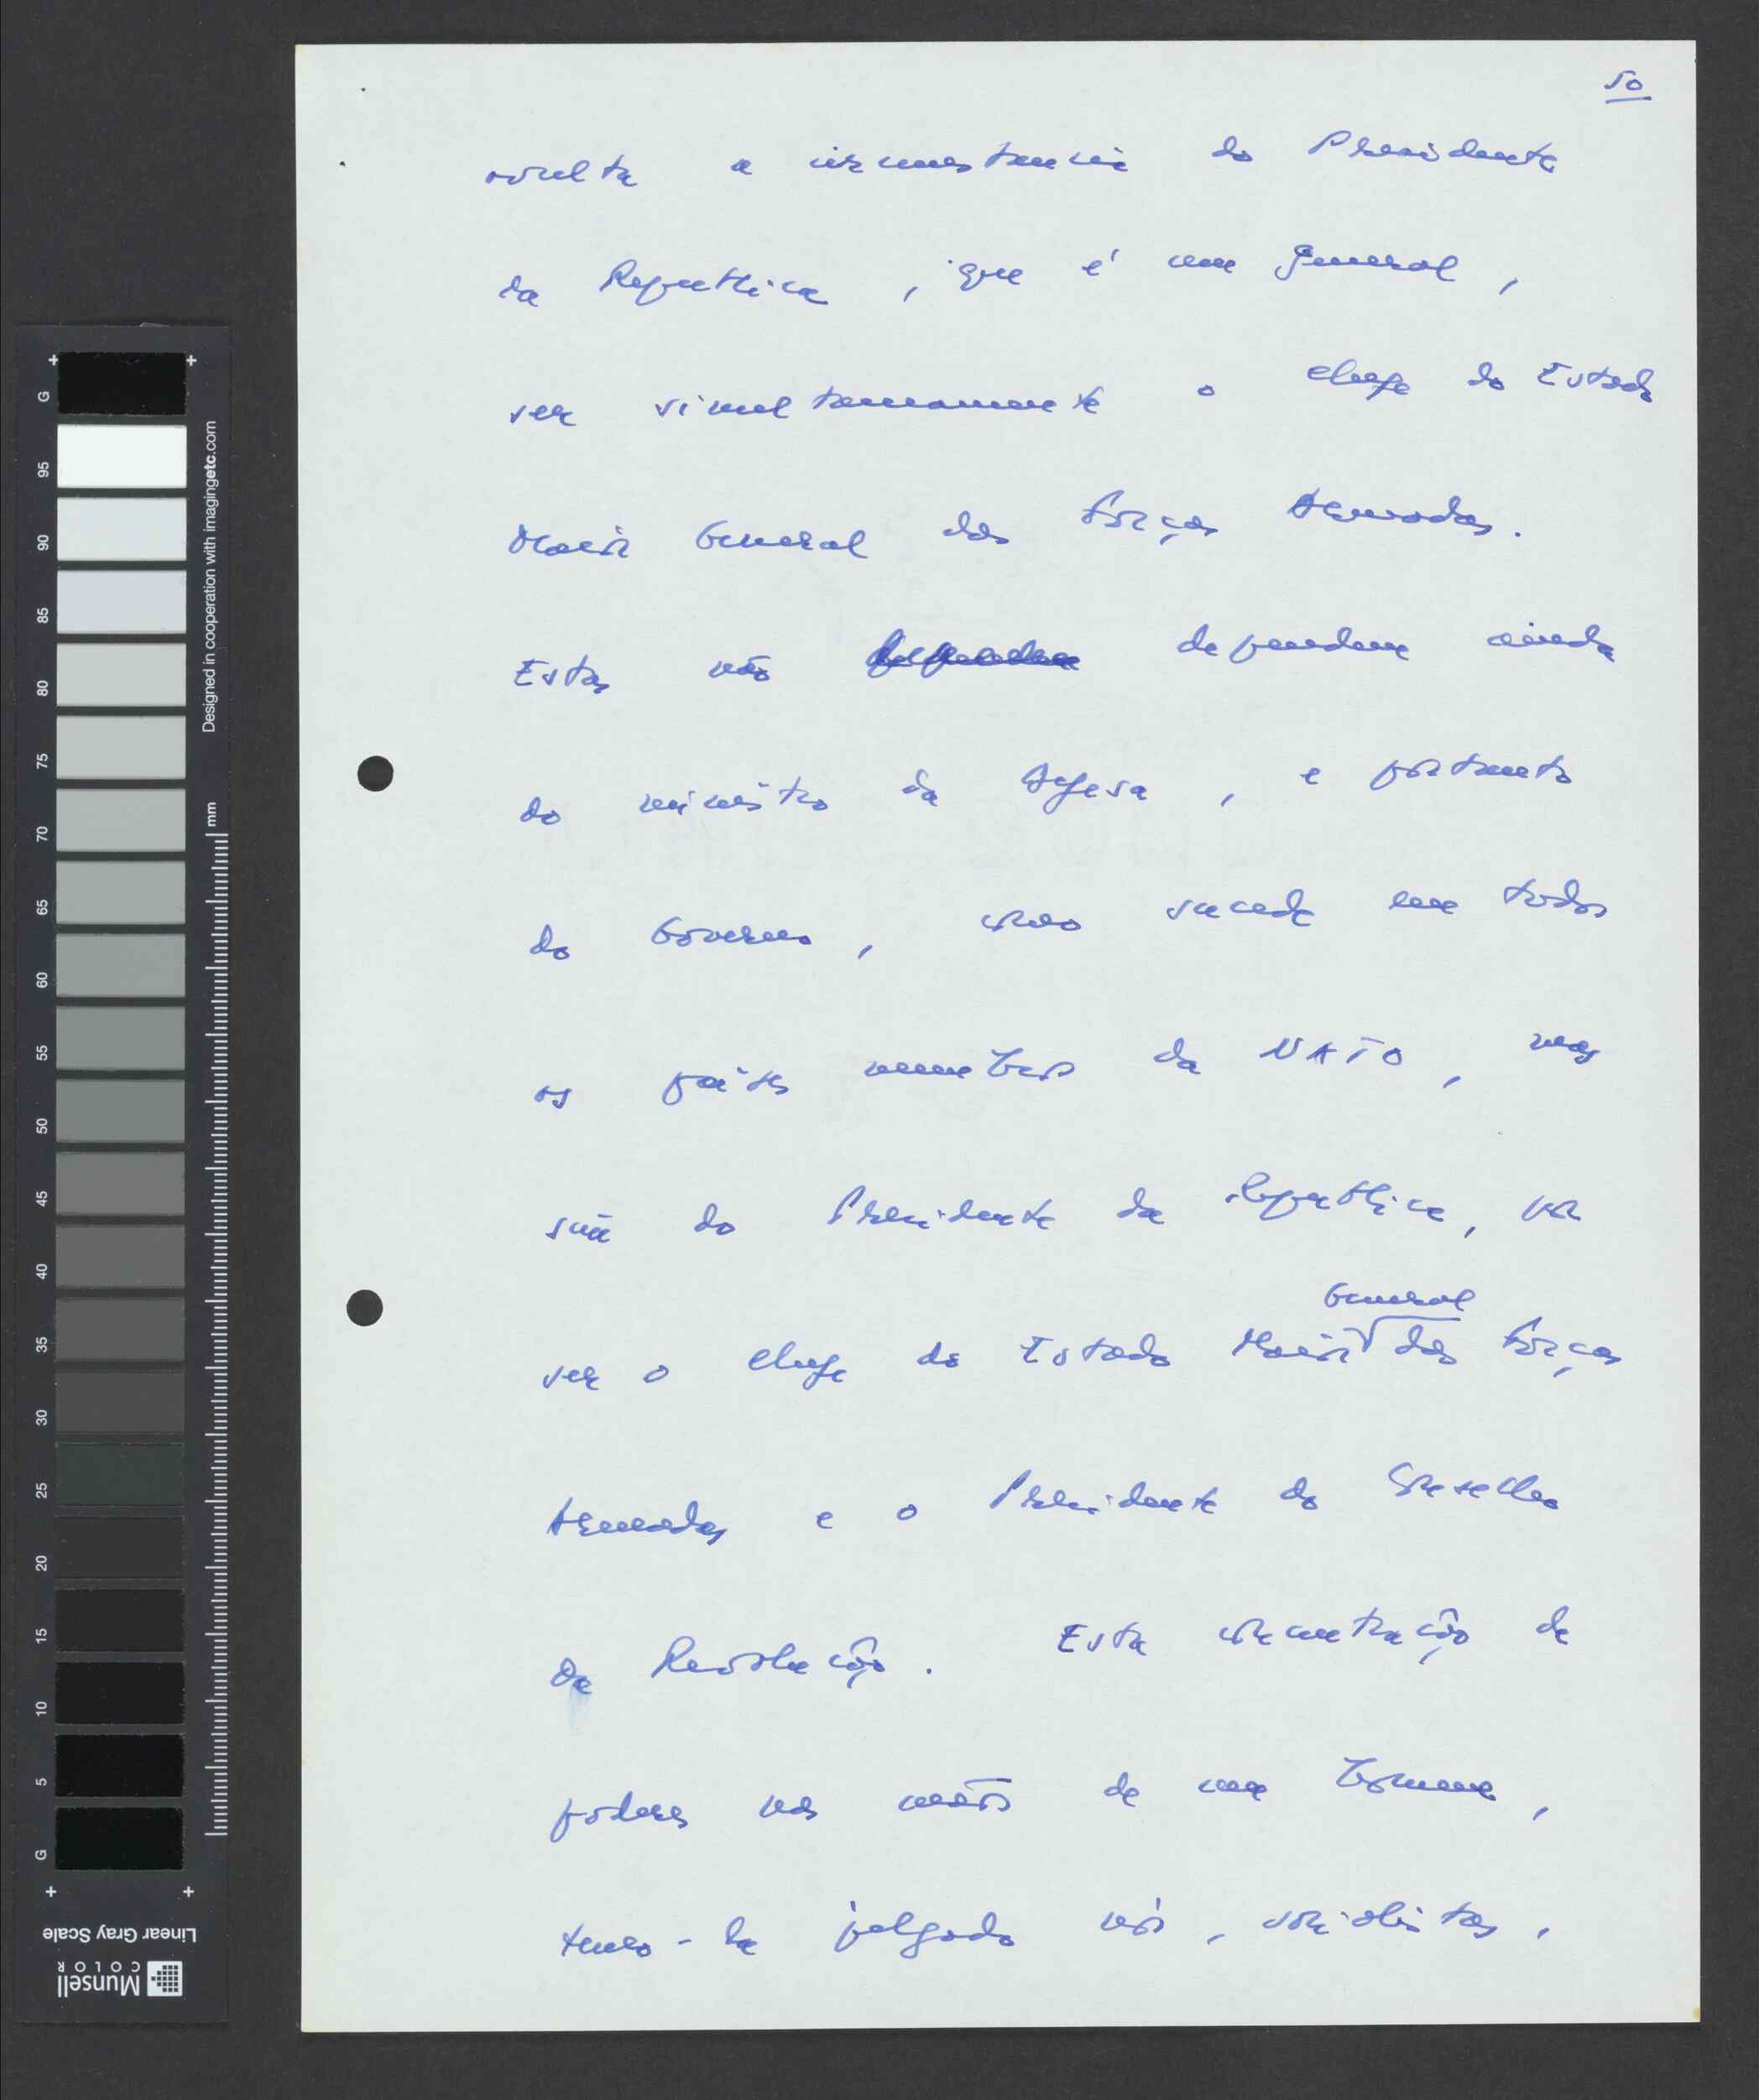 50
oculta a circunstancia do Presidente
da Republica, que é um general,
ser simultaneamente o chefe do Estado
Maior General das Forças Armadas.
Estas não dependem dependem ainda
do ministro da defesa, e portanto
do Governo, como sucede em todos
os países membros da NATO, mas
sim do Presidente da Republica, por
General
ser o chefe do Estado Maior das Forças
Armadas e o Presidente do Conselho
da Revolução. Esta concentração de
poderes nas mãos de um homem,
temo-la julgado nós, socialistas,
G
95
90
85
80
75
70
65
60
55
50
45
40
35
30
25
20
15
10
5
G
Designed in cooperation with imagingetc.com
mm
Linear Gray Scale
Munsell
COLOR